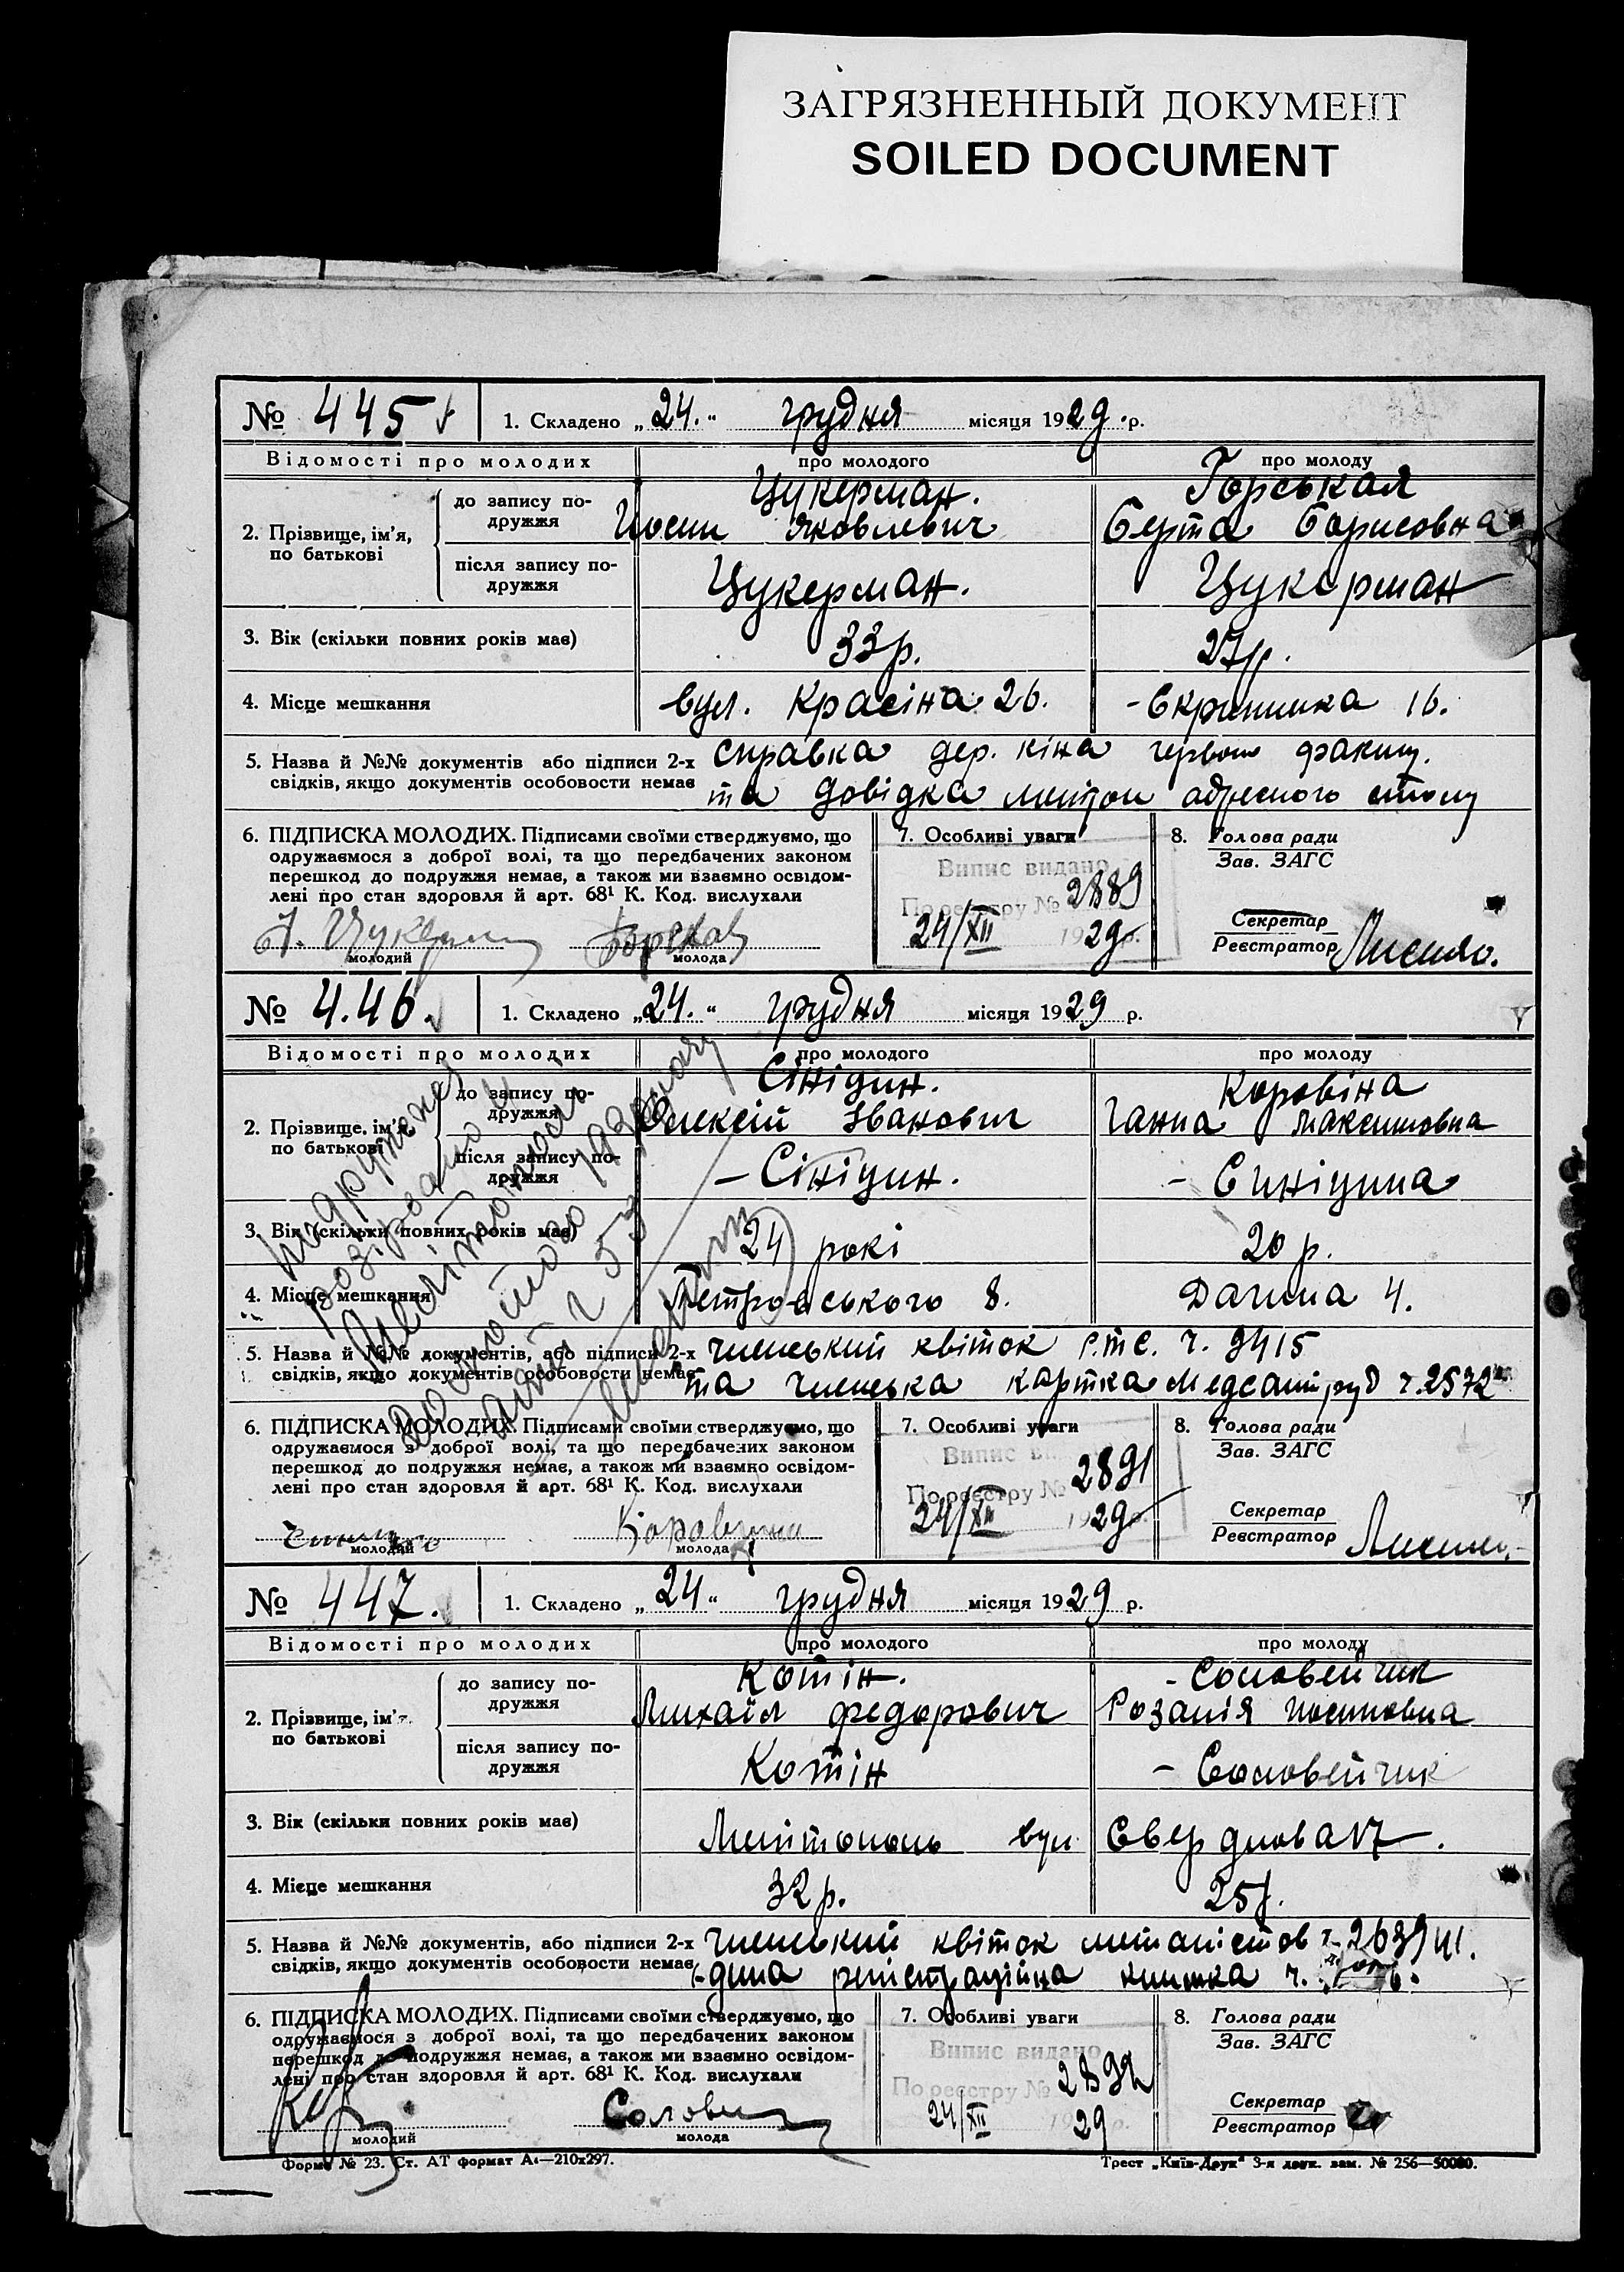 ЗАГРЯЗНЕННЫЙ ДОКУМЕНТ
SOILED DOCUMENT
№ 445
1. Складено „24.“ грудня місяця 1929 р.
Відомості про молодих
про молодого
про молоду
2. Прізвище, ім'я, по батькові
до запису подружжя
Цукерман.
Иосип Яковлевич
Горськая
Берта Борисовна
після запису подружжя
Цукерман.
Цукерман
3. Вік (скільки повних років має)
33 р.
27 р.
4. Місце мешкання
вул. Красіна 26.
16.
5. Назва й №№ документів або підписи 2-х
свідків, якщо документів особовости немає
справка дер. кіна
та довідка адресного столу
6. ПІДПИСКА МОЛОДИХ. Підписами своїми стверджуємо, що
одружаємося з доброї волі, та що передбачених законом
перешкод до подружжя немає, а також ми взаємно освідом-
лені про стан здоровля й арт. 68¹ К. Код. вислухали
молодий
молода
7. Особливі уваги
Випис видано
По реєстру № 2889
24/XII 1929 р.
8. Голова ради
Зав. ЗАГС
Секретар
Реєстратор
№ 4.46.
1. Складено „24.“ грудня місяця 1929 р.
Відомості про молодих
про молодого
про молоду
2. Прізвище, ім'я, по батькові
до запису подружжя
Сініцин.
Олексій Іванович
Коровіна
Ганна Максимовна
після запису подружжя
– Сініцин.
– Синіцина
3. Вік (скільки повних років має)
24 рокі
20 р.
4. Місце мешкання
Петровського 8.
4.
5. Назва й №№ документів, або підписи 2-х
свідків, якщо документів особовости немає
членський квіток р.т.с. ч. 9415
та членська картка Медсантруд ч. 2572
6. ПІДПИСКА МОЛОДИХ. Підписами своїми стверджуємо, що
одружаємося з доброї волі, та що передбачених законом
перешкод до подружжя немає, а також ми взаємно освідом-
лені про стан здоровля й арт. 68¹ К. Код. вислухали
молодий
молода
7. Особливі уваги
Випис
По реєстру № 2891
24/XII 1929 р.
8. Голова ради
Зав. ЗАГС
Секретар
Реєстратор
№ 447.
1. Складено „24“ грудня місяця 1929 р.
Відомості про молодих
про молодого
про молоду
2. Прізвище, ім'я, по батькові
до запису подружжя
Котін.
Михайл Федорович
- Соловейчик
Розалія Иосиповна
після запису подружжя
Котін
– Соловейчик
3. Вік (скільки повних років має)
Мелітополь вул. Свердлова 17.
4. Місце мешкання
32 р.
25 р.
5. Назва й №№ документів, або підписи 2-х
свідків, якщо документів особовости немає
членський квіток металістов
реєстраційна книжка ч.
6. ПІДПИСКА МОЛОДИХ. Підписами своїми стверджуємо, що
одружаємося з доброї волі, та що передбачених законом
перешкод до подружжя немає, а також ми взаємно освідом-
лені про стан здоровля й арт. 68¹ К. Код. вислухали
молодий
молода
7. Особливі уваги
Випис видано
По реєстру № 2892
24/XII 1929 р.
8. Голова ради
Зав. ЗАГС
Секретар
Реєстратор
Форма № 23. Ст. АТ формат А4—210х297.
Трест „Київ-Друк“ 3-я друк. зам. № 256—50000.